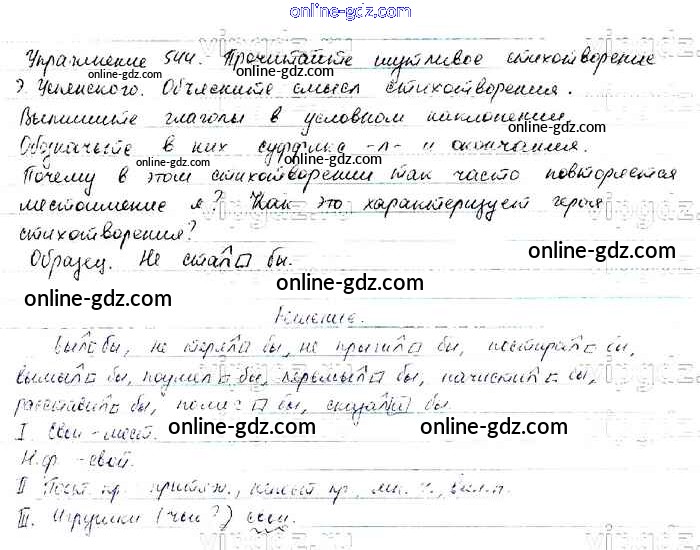 online-gdz.com
Упражнение 544. Прочитайте шутливое стихотворение
Э. Успенского. Объясните смысл стихотворения.
Выпишите глаголы в условном наклонении.
Обозначьте в них суффикс -л- и окончания.
Почему в этом стихотворении так часто повторяется
местоимение я? Как это характеризует героя
стихотворения?
Образец. Не стал бы.
Решение.
был бы, не терял бы, не прыгал бы, постирал бы,
вымыл бы, бы, бы, начистил бы,
расставил бы, бы, сказал бы
I. Свои - мест.
Н.ф. - свой.
II Пост. пр. притяж., непост. пр., мн. ч., вин.п.
III. Игрушки (чьи?) свои.
online-gdz.com
online-gdz.com
online-gdz.com
online-gdz.com
online-gdz.com
online-gdz.com
online-gdz.com
online-gdz.com
online-gdz.com
online-gdz.com
online-gdz.com
online-gdz.com